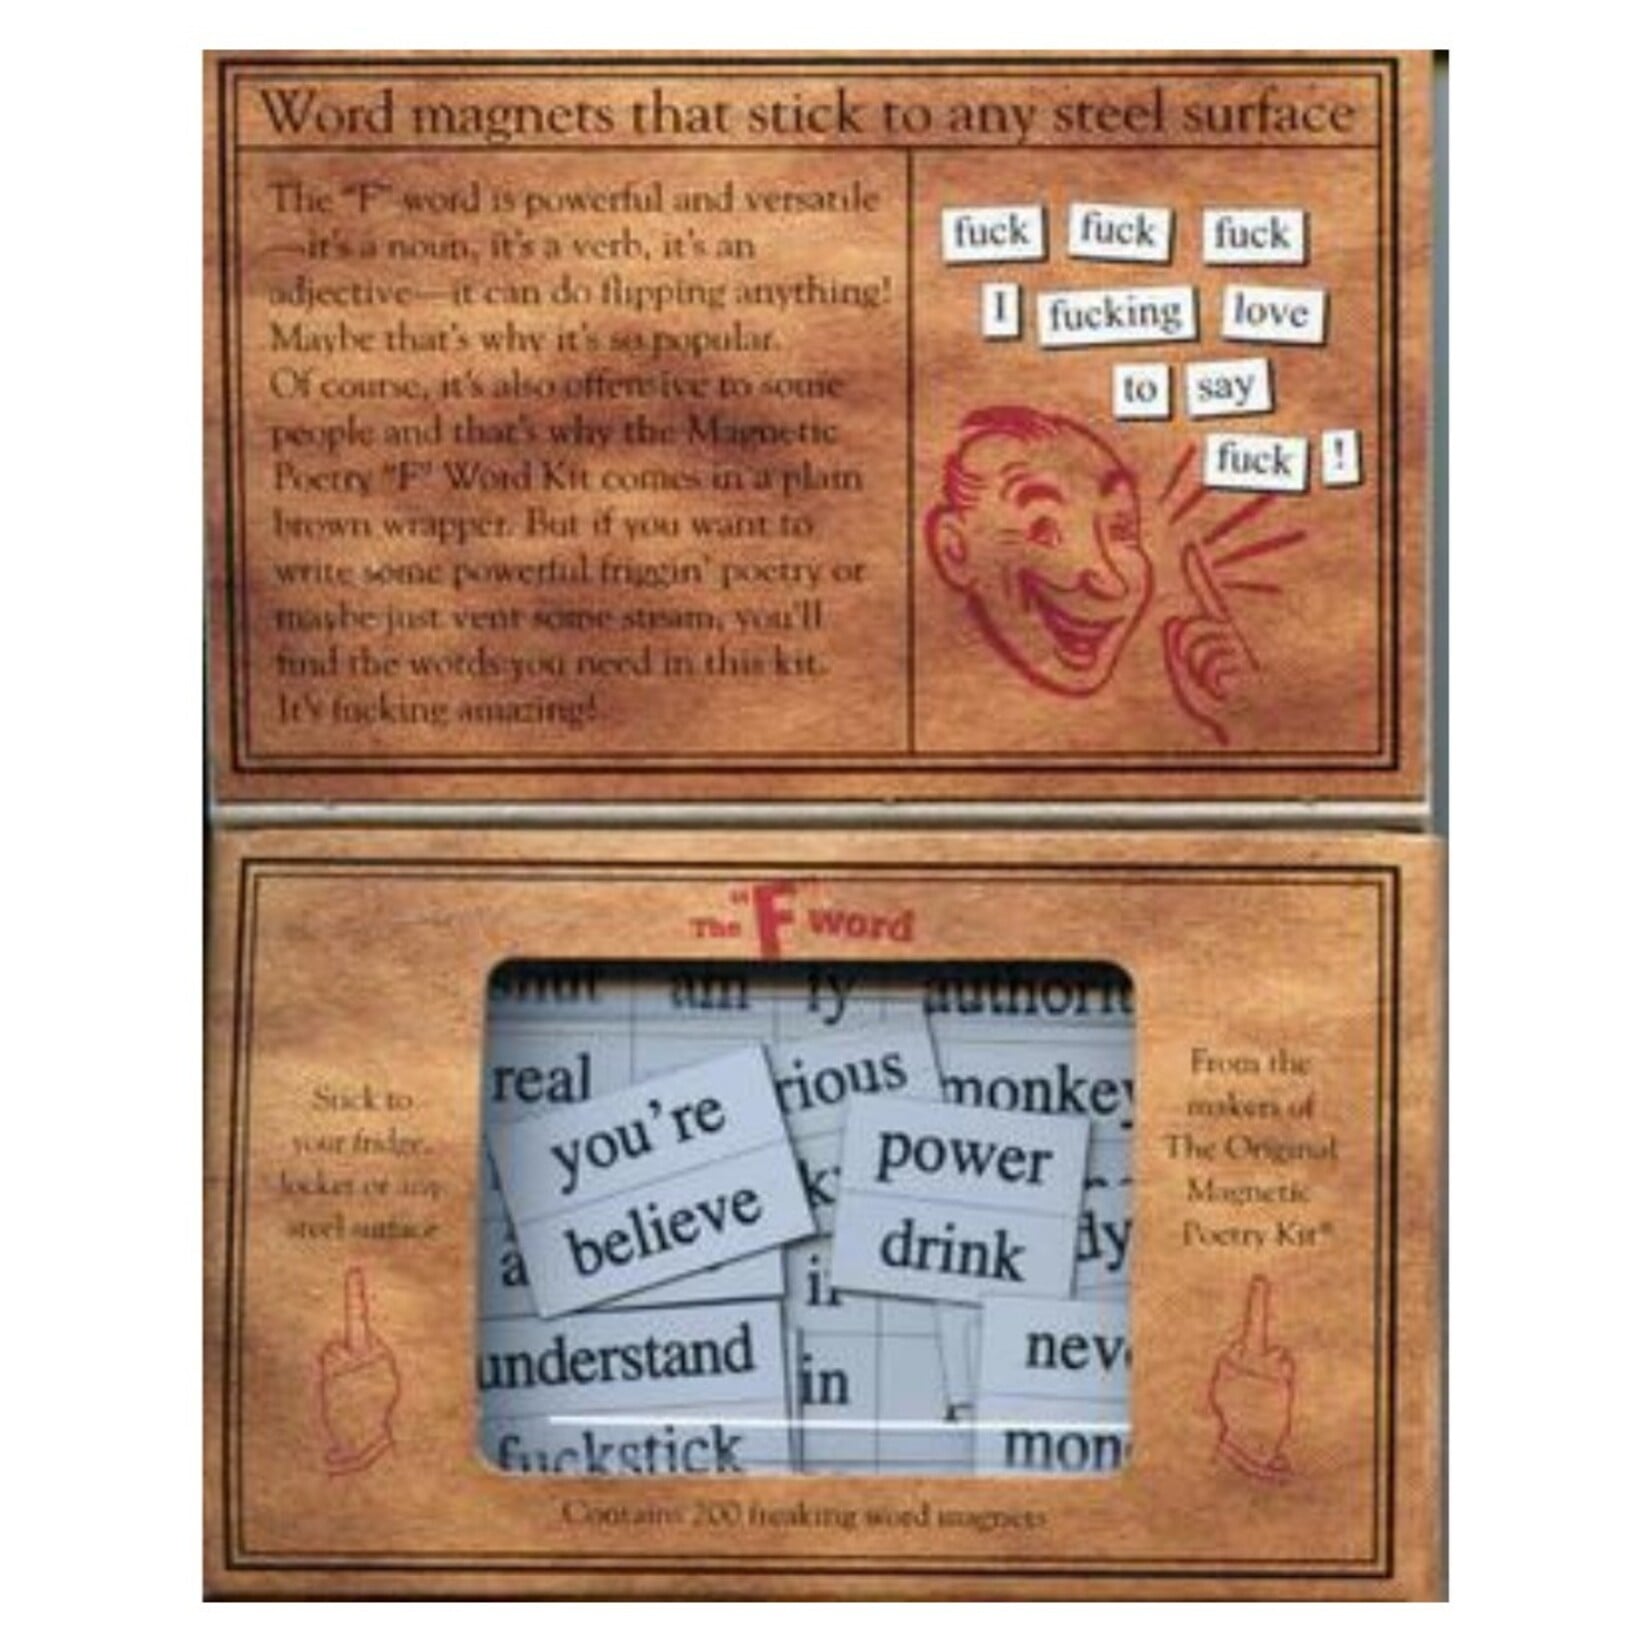 Word magnets that stick to any steel surface
The "F" word is powerful and versatile
—it's a noun, it's a verb, it's an
adjective—it can do flipping anything!
Maybe that's why it's so popular.
Of course, it's also offensive to some
people and that's why the Magnetic
Poetry "F" Word Kit comes in a plain
brown wrapper. But if you want to
write some powerful friggin' poetry or
maybe just vent some steam, you'll
find the words you need in this kit.
It's fucking amazing!
fuck fuck fuck
I fucking love
to say
fuck !
The "F" word
Stick to
your fridge,
locker or any
steel surface
am ly authorit
real rious monkey
you're
believe
power
drink
dy
understand in nev
fuckstick mon
From the
makers of
The Original
Magnetic
Poetry Kit®
Contains 200 freaking word magnets